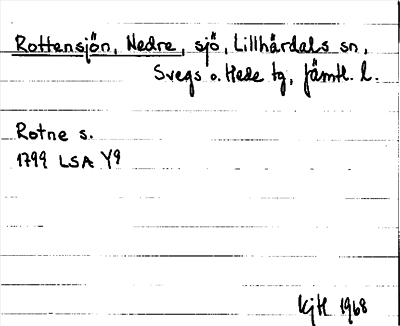 Rottensjön, Nedre, sjö, Lillhärdals sn,
Svegs o. Hede tg, Jämtl. l.
Rotne s.
1799 LSA Y9
KjH 1968